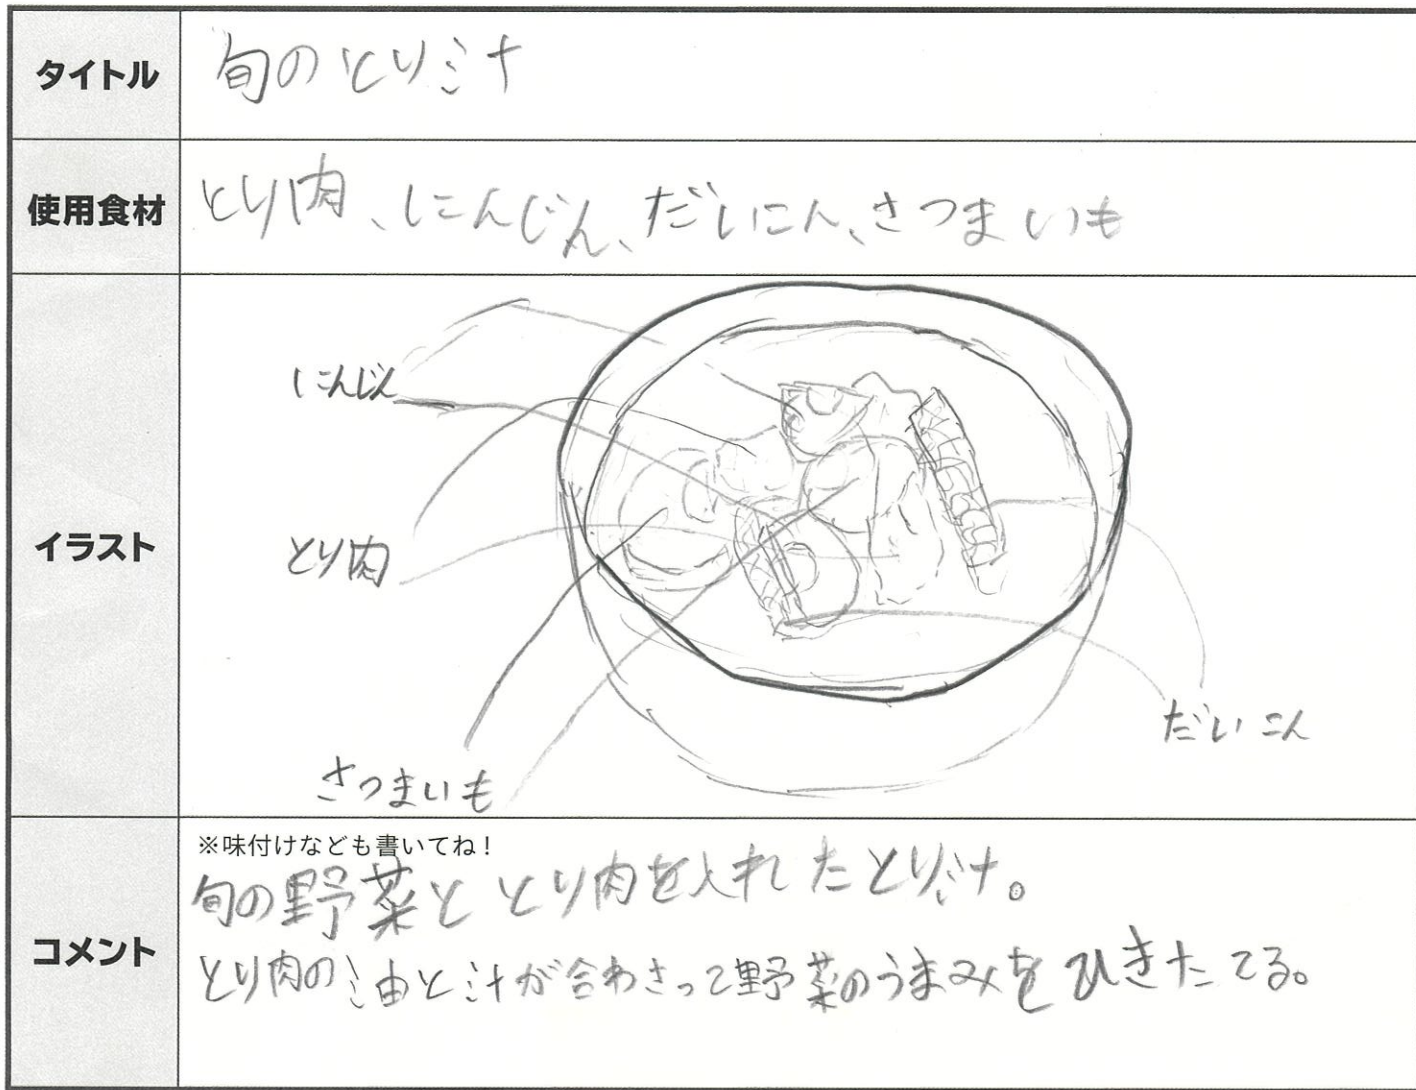 タイトル
旬のとり汁
使用食材
とり肉、にんじん、だいこん、さつまいも
イラスト
にんじん
とり肉
さつまいも
だいこん
コメント
※味付けなども書いてね!
旬の野菜ととり肉を入れたとり汁。
とり肉の油と汁が合わさって野菜のうまみをひきたてる。